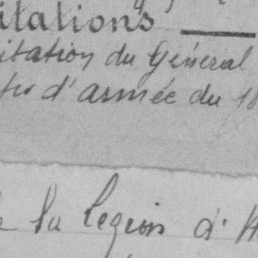 itations
itation du Général
d'armée du 18
la legion d'H